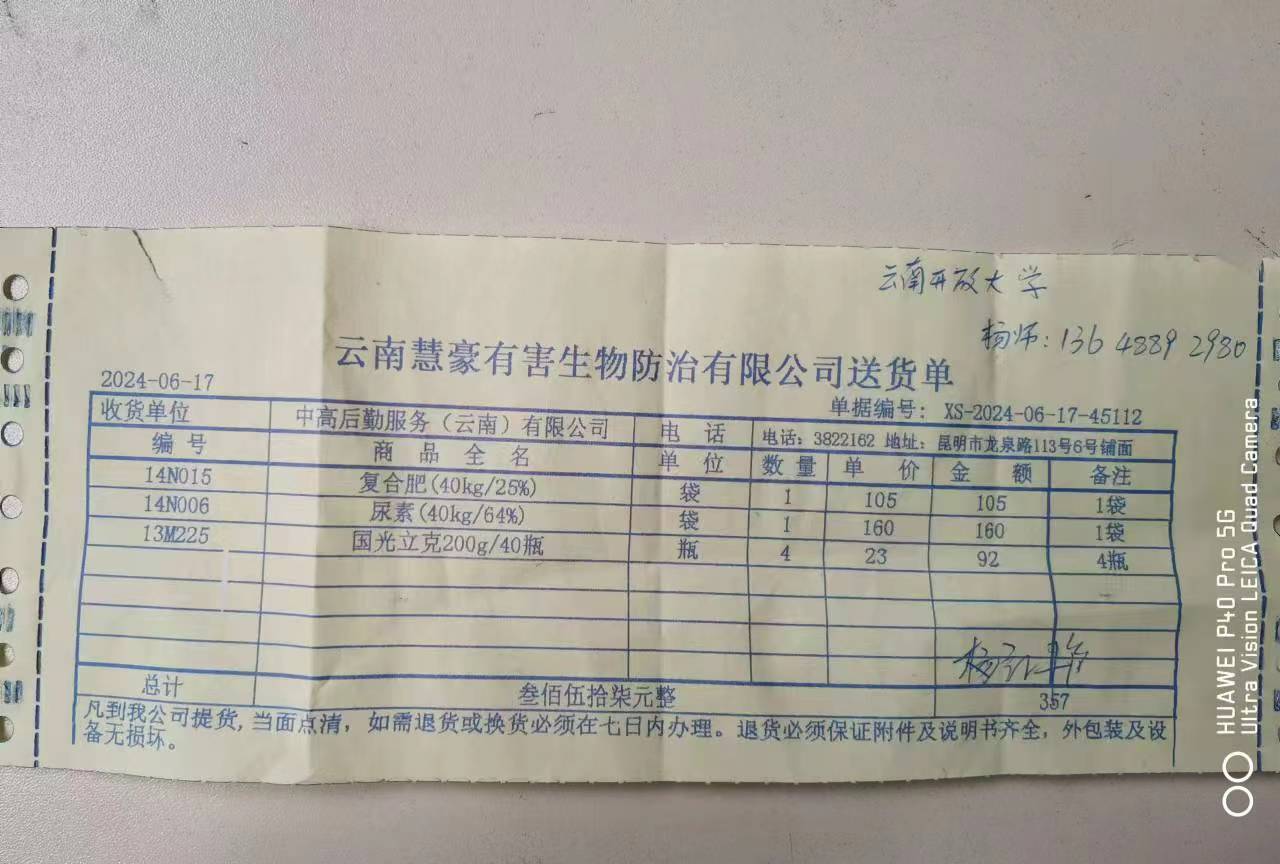 云南开放大学
杨师：136 4889 2980
云南慧豪有害生物防治有限公司送货单
2024-06-17 单据编号: XS-2024-06-17-45112
收货单位 中高后勤服务（云南）有限公司 电 话 电话: 3822162 地址: 昆明市龙泉路113号6号铺面
编 号 商 品 全 名 单 位 数 量 单 价 金 额 备注
14N015 复合肥(40kg/25%) 袋 1 105 105 1袋
14N006 尿素(40kg/64%) 袋 1 160 160 1袋
13M225 国光立克200g/40瓶 瓶 4 23 92 4瓶
总计 叁佰伍拾柒元整 357
凡到我公司提货,当面点清，如需退货或换货必须在七日内办理。退货必须保证附件及说明书齐全，外包装及设
备无损坏。
HUAWEI P40 Pro 5G
Ultra Vision LEICA Quad Camera